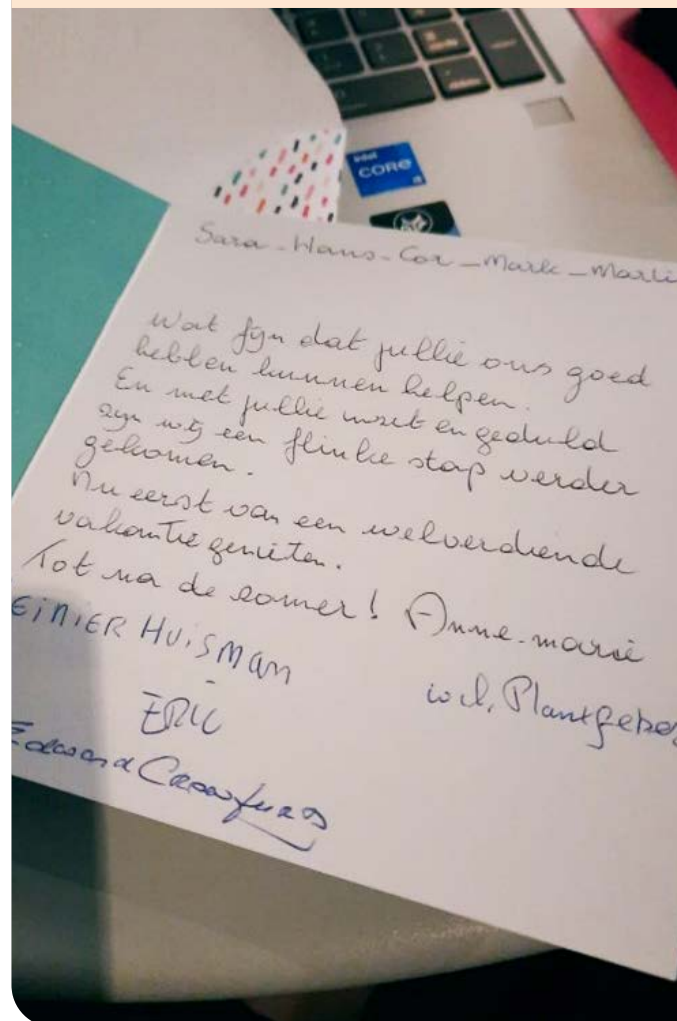 intel
CORE
i5
Sara - Hans - Cor - Mark - Marli
Wat fijn dat jullie ons goed
hebben kunnen helpen.
En met jullie inzet en geduld
zijn wij een flinke stap verder
gekomen.
Nu eerst van een welverdiende
vakantie genieten.
Tot na de zomer! Anne-marie
EINIER HUISMAN
ERIC